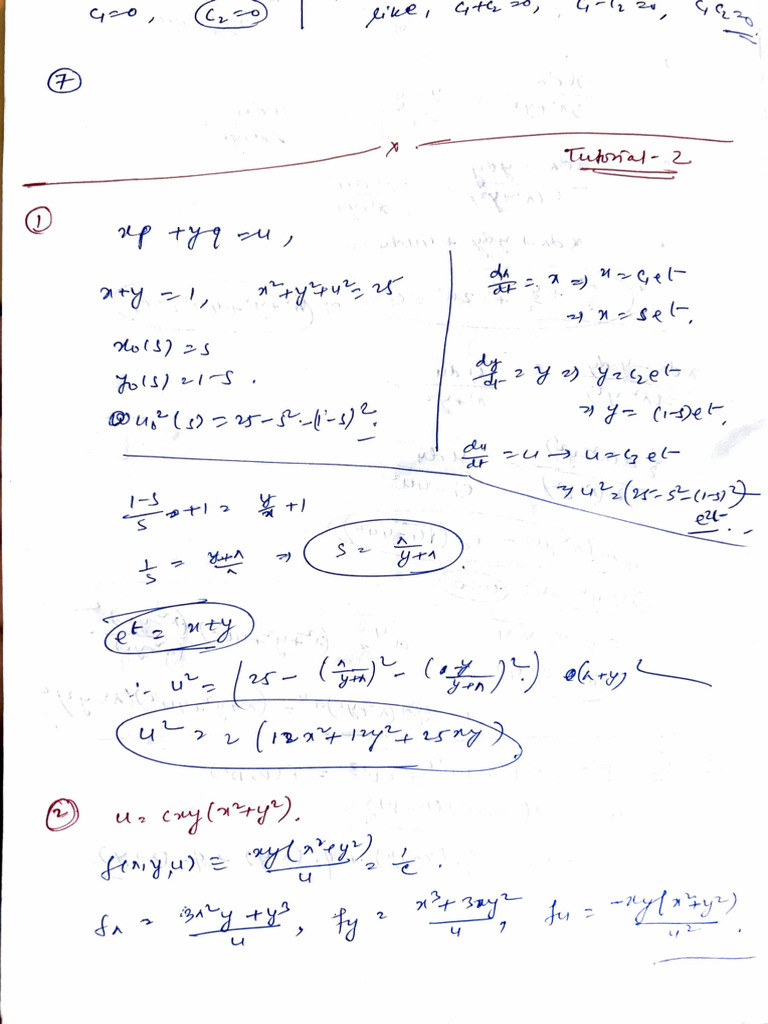 C₁=0, C₂=0 | like, C₁+C₂=0, C₁-C₂=0, C₁C₂=0
7
x
Tutorial-2
1
xp + yq = u,
x+y = 1, x²+y²+u² = 25
x₀(s) = s
y₀(s) = 1-s.
u₀²(s) = 25-s²-(1-s)².
dx/dt = x ⇒ x = c₁e^t
⇒ x = se^t.
dy/dt = y ⇒ y = c₂e^t
⇒ y = (1-s)e^t.
du/dt = u → u = c₃e^t
⇒ u² = (25-s²-(1-s)²)
e^2t.
(1-s)/s + 1 = y/x + 1
1/s = (y+x)/x ⇒ s = x/(y+x).
e^t = x+y
∴ u² = (25 - (x/(y+x))² - (y/(y+x))².) (x+y)²
u² = 2(12x²+12y²+25xy).
2 u = cxy(x²+y²).
f(x,y,u) ≡ xy(x²+y²)/u = 1/c.
fx = (3x²y+y³)/u, fy = (x³+3xy²)/u, fu = -xy(x²+y²)/u².